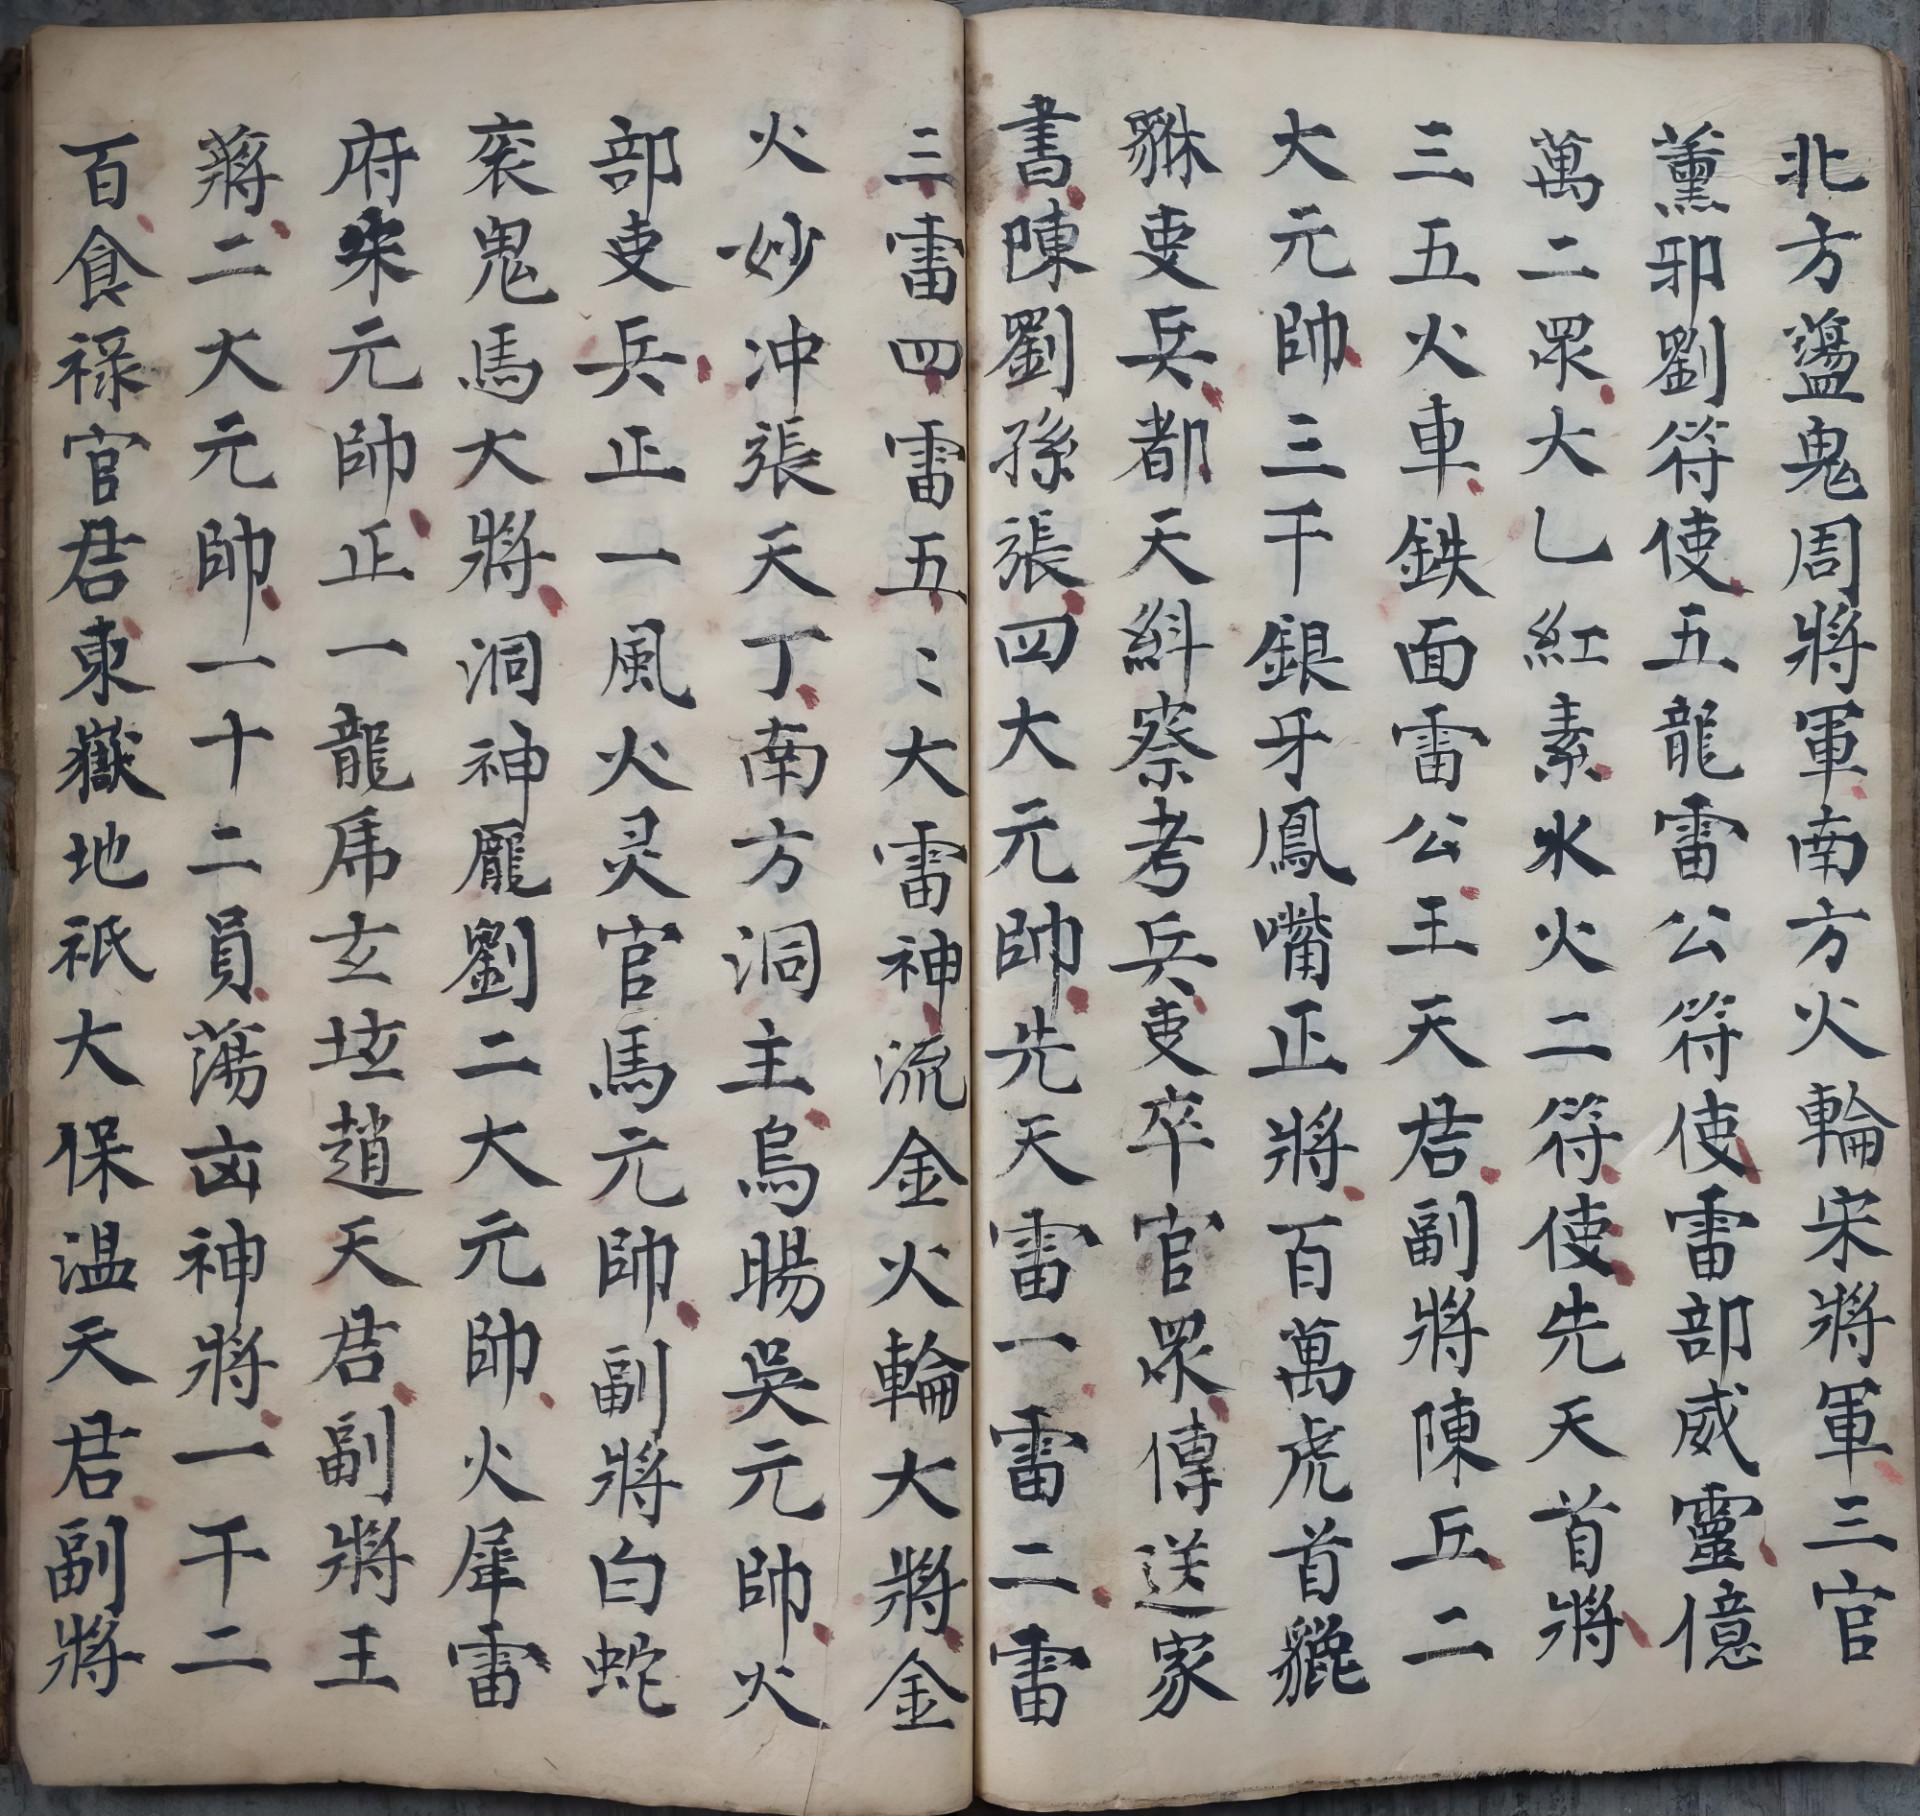 北方盪鬼周將軍南方火輪宋將軍三官
薰邪劉符使五龍雷公符使雷部威靈億
萬二眾大乚紅素水火二符使先天首將
三五火車鉄面雷公王天君副將陳丘二
大元帥三千銀牙鳳嘴正將百萬虎首貔
貅吏兵都天糾察考兵吏卒官眾傳送家
書陳劉孫張四大元帥先天雷一雷二雷
三雷四雷五〻大雷神流金火輪大將金
火妙冲張天丁南方洞主烏暘吳元帥火
部吏兵正一風火灵官馬元帥副將白蛇
袞鬼馬大將洞神龐劉二大元帥火犀雷
府朱元帥正一龍虎玄坛趙天君副將王
蔣二大元帥一十二員蕩凶神將一千二
百食祿官君東嶽地祇大保温天君副將